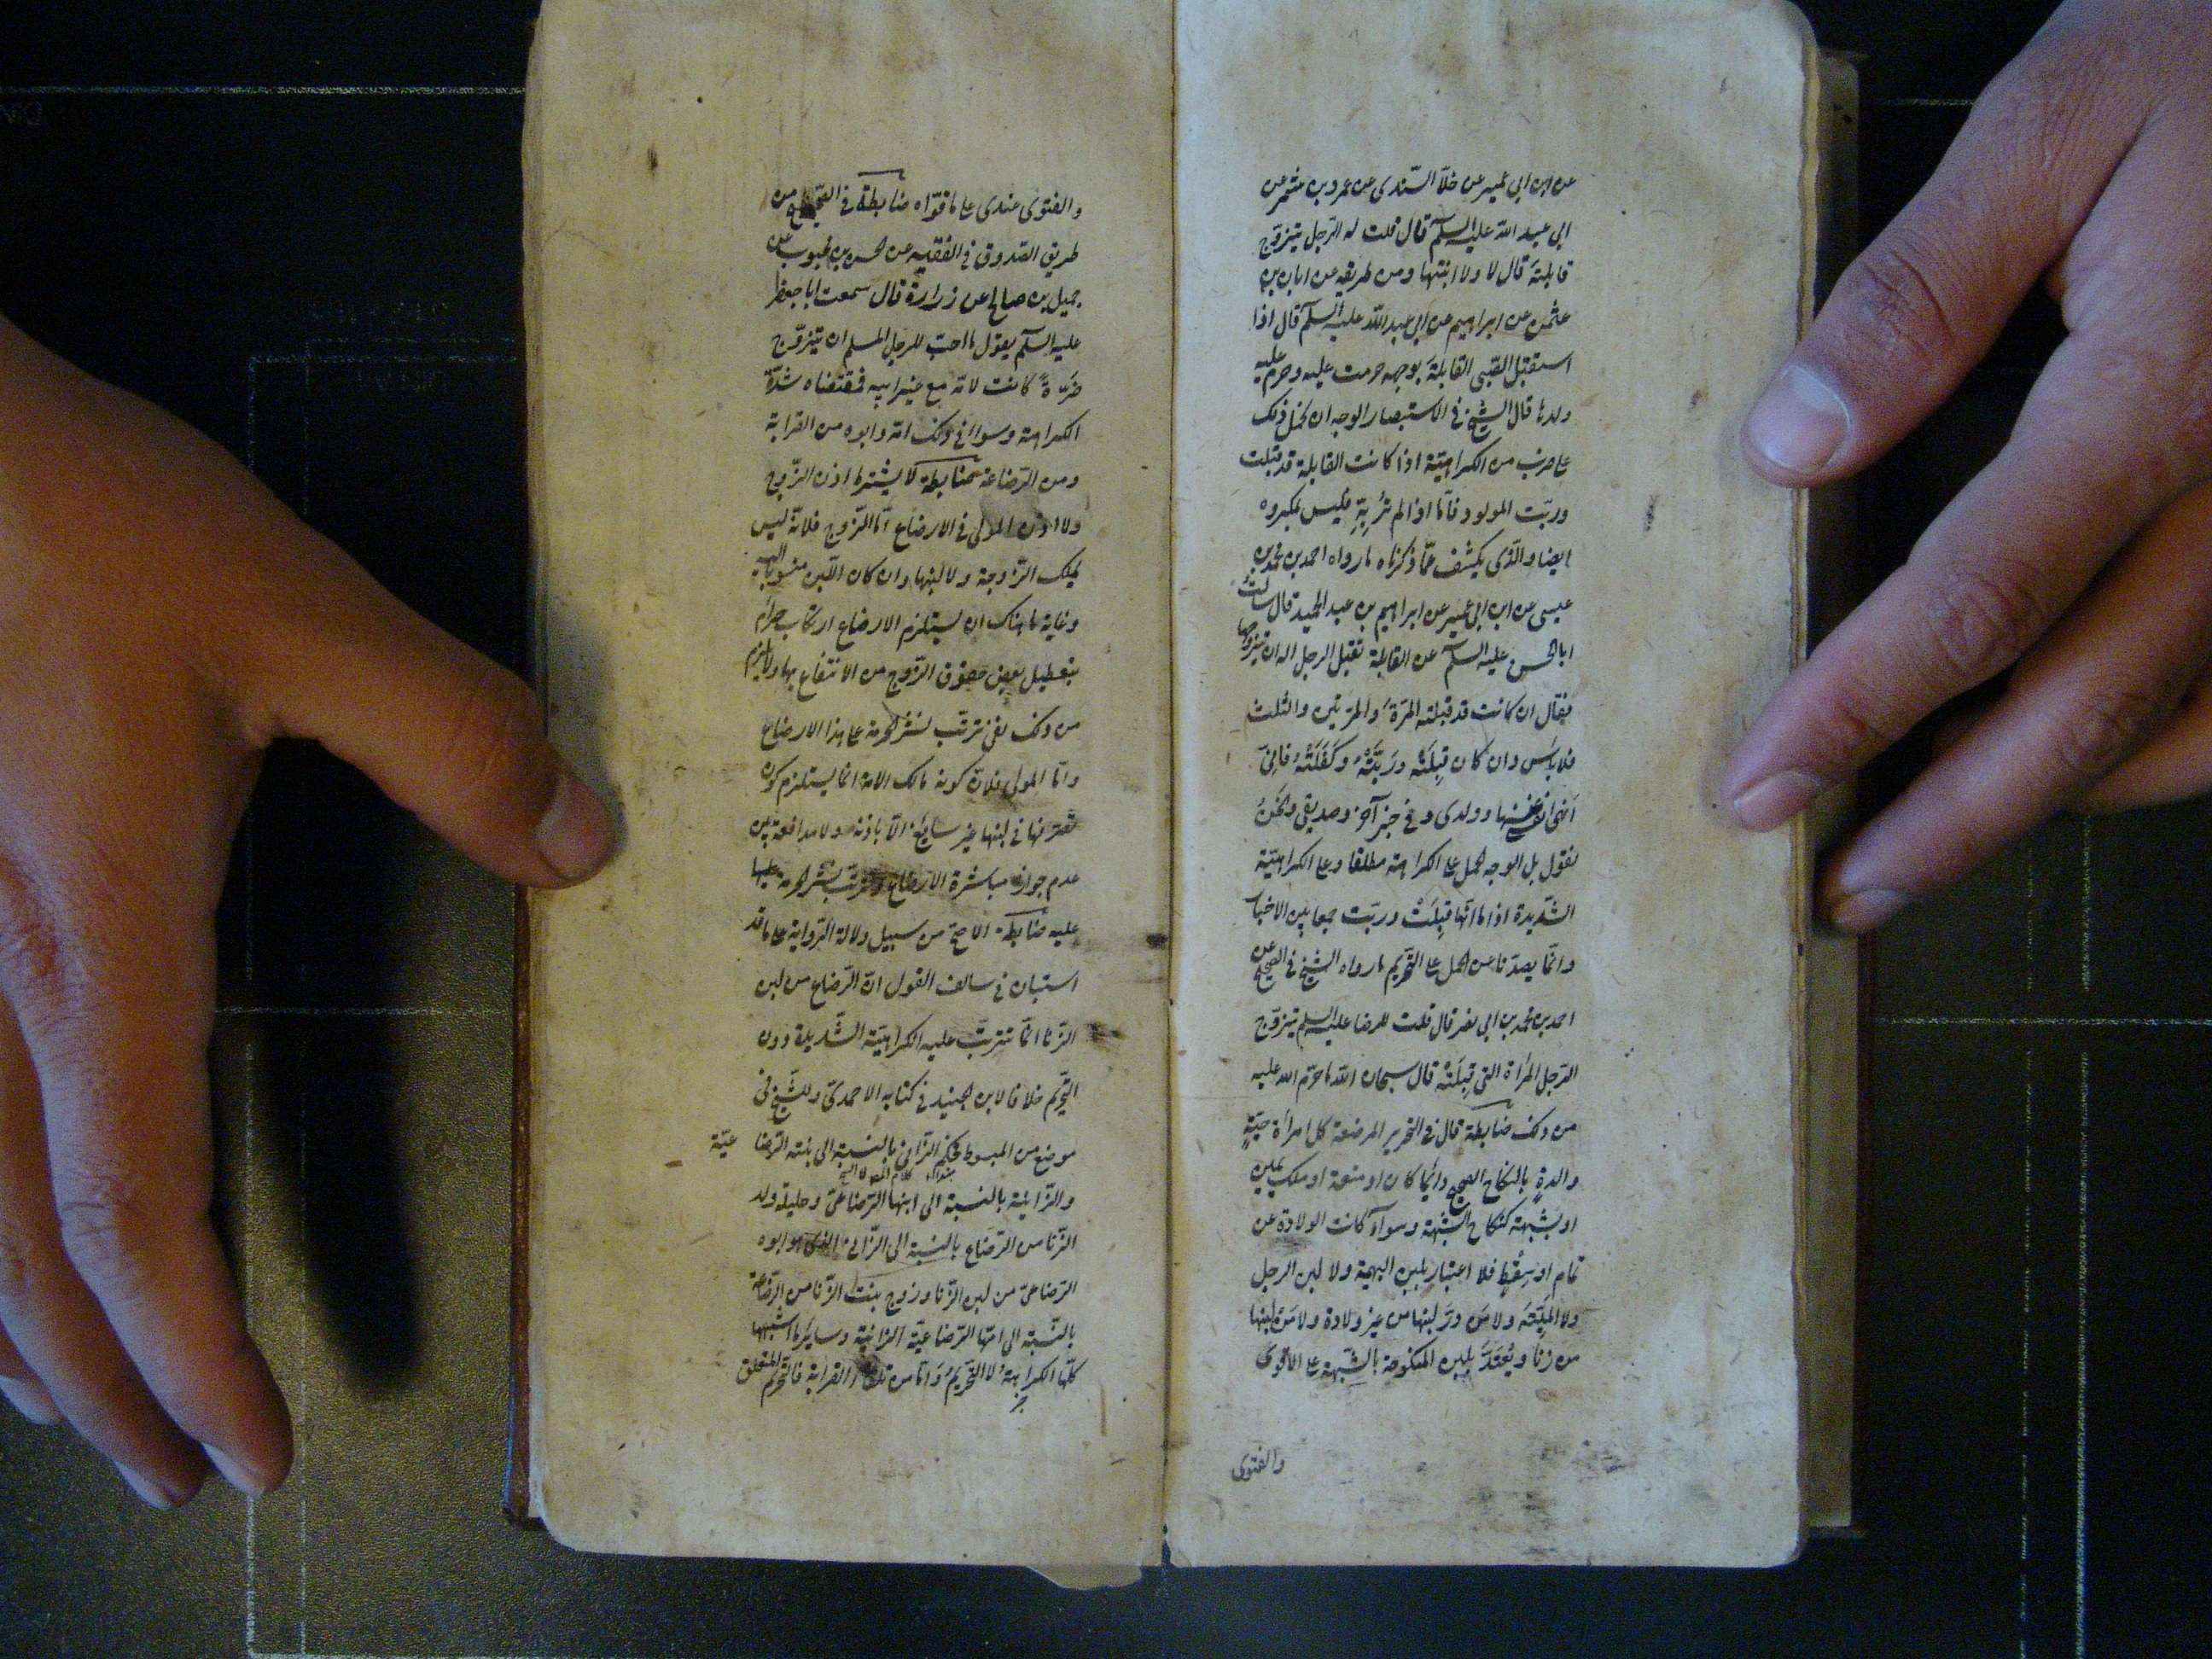 عن ابن ابي عمير عن خلاد السندي عن عمرو بن شمر عن
ابي عبد الله عليه السلم قال قلت له الرجل يتزوج
قابلته قال لا ولا ابنتها ومن طريقه عن ابان بن
عثمن عن ابراهيم عن ابي عبد الله عليه السلم قال اذا
استقبل الصبي القابلة بوجهه حرمت عليه وحرم عليه
ولدها قال الشيخ في الاستبصار الوجه ان نحمل ذلك
على ضرب من الكراهية اذا كانت القابلة قد قبلت
وربت المولود فاما اذا لم تربه فليس بمكروه
ايضا والذي يكشف عما ذكرناه ما رواه احمد بن محمد بن
عيسى عن ابن ابي عمير عن ابراهيم بن عبد الحميد قال سالت
ابا الحسن عليه السلم عن القابلة تقبل الرجل اله ان يتزوجها
فقال ان كانت قد قبلته المرة والمرتين والثلث
فلا باس وان كان قبلته وربته وكفلته فاني
انهى نفسي عنها وولدي وفي خبر آخر وصديقي ونحن
نقول بل الوجه الحمل على الكراهة مطلقا وعلى الكراهية
الشديدة اذا ما انها قبلت وربت جمعا بين الاخبار
وانما يصدنا عن الحمل على التحريم ما رواه الشيخ في الصحيح عن
احمد بن محمد بن ابي نصر قال قلت للرضا عليه السلم يتزوج
الرجل المراة التي قبلته قال سبحان الله ما حرم الله عليه
من ذلك ضابطة قال في التحرير المرضعة كل امرأة حية
والدة بالنكاح الصحيح دائما كان او متعة او ملك يمين
او بشبهة كنكاح الشبهة وسوآء كانت الولادة عن
تمام او سقط فلا اعتبار بلبن البهيمة ولا لبن الرجل
ولا الميتة ولا من در لبنها من غير ولادة ولا من لبنها
من زنا ويعتد بلبن المنكوحة بالشبهة على الاقوى
والفتوى
والفتوى عندي على ما قواه ضابطة في الصحيح من
طريق الصدوق في الفقيه عن الحسن بن محبوب عن
جميل بن صالح عن زرارة قال سمعت ابا جعفر
عليه السلم يقول ما احب للرجل المسلم ان يتزوج
ضرة كانت لامه مع غير ابيه فمقتضاه شدة
الكراهة وسواء في ذلك امه وابوه من القرابة
ومن الرضاعة ضابطة لا يشترط اذن الزوج
ولا اذن المولى في الارضاع اما الزوج فلانه ليس
يملك الزوجة ولا لبنها وان كان اللبن منسوبا اليه
وغاية ما هناك ان يستلزم الارضاع ارتكاب حرام
بتعطيل بعض حقوق الزوج من الانتفاع بها ولا يلزم
من ذلك نفي ترتب نشر الحرمة على هذا الارضاع
واما المولى فلان كونه مالك الامة انما يستلزم كون
تصرفها في لبنها غير سايغ الا باذنه ولا مدافعة بين
عدم جواز مباشرة الارضاع وترتب نشر الحرمة
عليه ضابطة الاصح من سبيل دلالة الرواية على ما قد
استبان في سالف القول ان الرضاع من لبن
الزنا انما تترتب عليه الكراهية الشديدة دون
التحريم خلافا لابن الجنيد في كتابه الاحمدي وللشيخ في
موضع من المبسوط فحكم الزاني بالنسبة الى بنته الرضا عية
والزانية بالنسبة الى ابنها الرضاعي وحليلة ولد
الزنا من الرضاع بالنسبة الى الزاني الذي هو ابوه
الرضاعي من لبن الزنا وزوج بنت الزنا من الرضاعة
بالنسبة الى امها الرضاعية الزانية وساير ما اشبهها
كلها الكراهة لا التحريم واما من تلقاء القرابة فالتحريم المتعلق